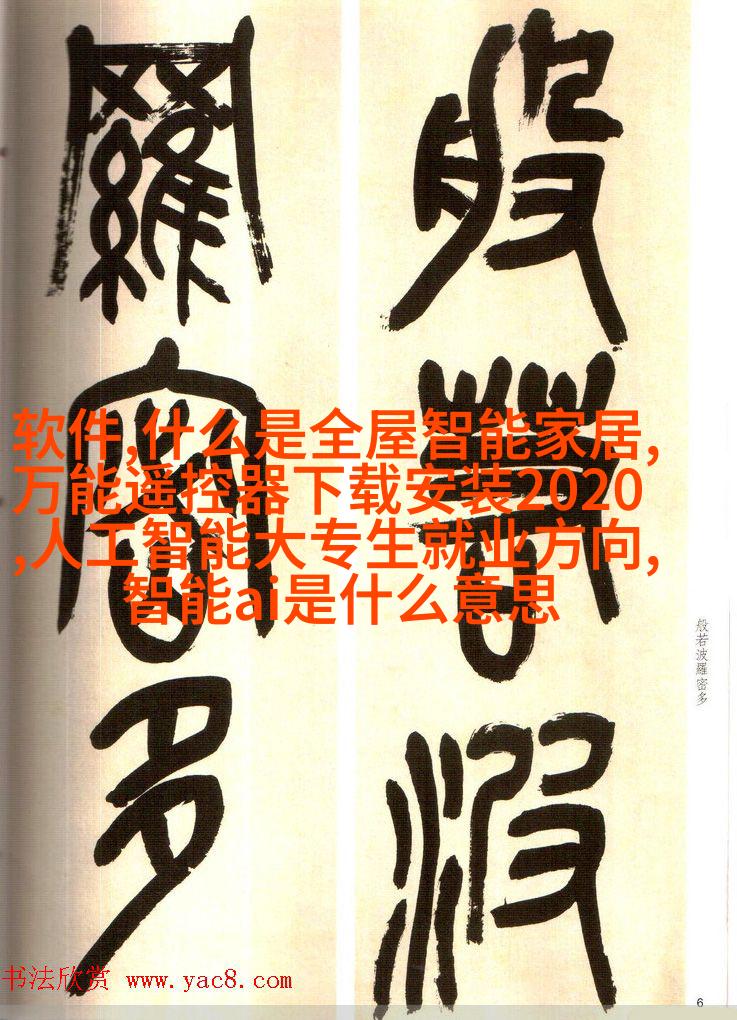 般若波
羅密多
软件,什么是全屋智能家居,
万能遥控器下载安装2020
,人工智能大专生就业方向,
智能ai是什么意思
般若波羅密多
书法欣赏 www.yac8.com
6